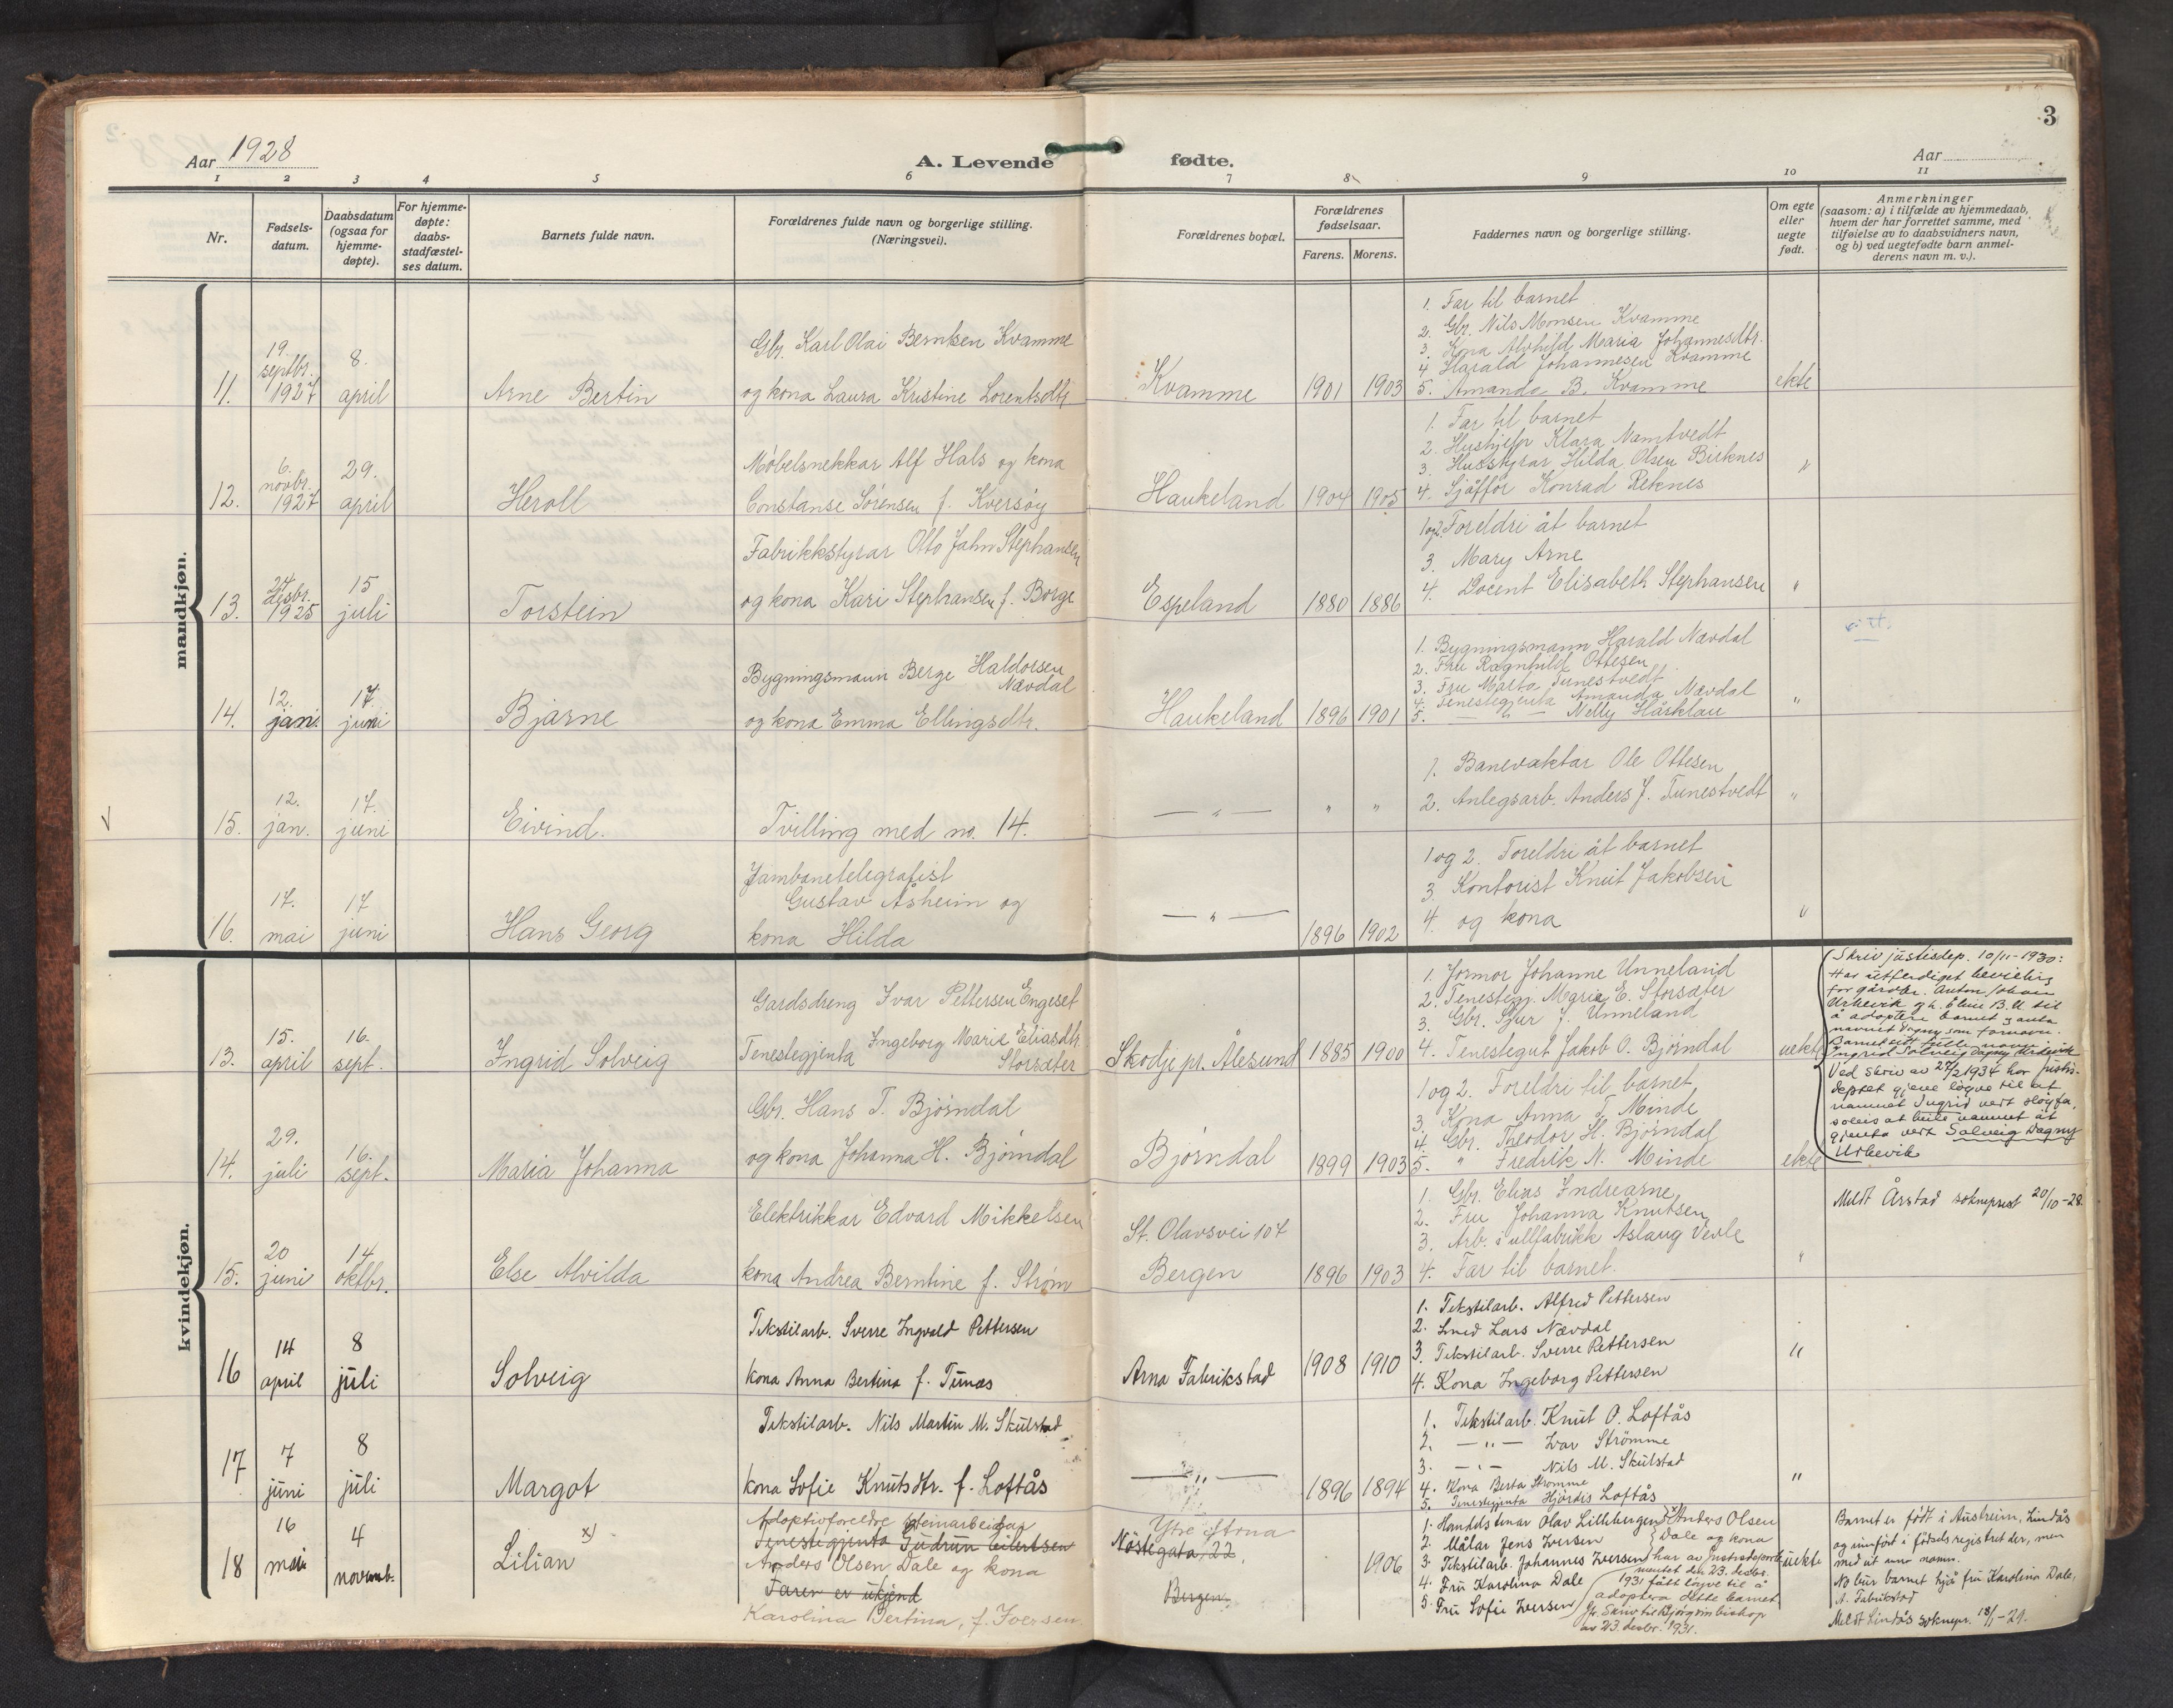 3
Aar 1928
A. Levende fødte.
Aar
1 2 3 4 5 6 7 8 9 10 11
Nr.
Fødsels-
datum.
Daabsdatum
(ogsaa for
hjemme-
døpte).
For hjemme-
døpte:
daabs-
stadfæstel-
ses datum.
Barnets fulde navn.
Forældrenes fulde navn og borgerlige stilling.
(Næringsvei).
Forældrenes bopæl.
Forældrenes
fødselsaar.
Farens. Morens.
Faddernes navn og borgerlige stilling.
Om egte
eller
uegte
født.
Anmerkninger
(saasom: a) i tilfælde av hjemmedaab,
hvem der har forrettet samme, med
tilføielse av to daabsvidners navn,
og b) ved uegtefødte barn anmel-
derens navn m. v.).
mandkjøn.
11.
19.
septbr.
1927
8.
april
Arne Bertin
Gbr. Karl Olai Berntsen Kvamme
og kona Laura Kristine Lorentsdtr
Kvamme
1901
1903
1. Far til barnet
2. Gbr. Nils Monsen Kvamme
3. Kona Alvhild Maria Johannesdtr.
4 Harald Johannesen Kvamme
5. Amanda B. Kvamme
ekte
12.
6.
novbr.
1927
29.
april
Heroll
Møbelsnekkar Alf Hals og kona
Constanse Sørensen f. Kversøy
Haukeland
1904
1905
1. Far til barnet
2. Hushjelp Klara Namtvedt
3. Husstyrar Hilda Olsen Birknes
4. Sjåffør Konrad Reknes
"
13.
24
desbr.
1925
15
juli
Torstein
Fabrikkstyrar Otto Jahn Stephansen
og kona Kari Stephansen f. Borge
Espeland
1880
1886
1og2. Foreldri åt barnet
3. Mary Arne
4. Docent Elisabeth Stephansen
"
14.
12.
jan.
17.
juni
Bjarne
Bygningsmann Berge Haldorsen
Nævdal
og kona Emma Ellingsdtr.
Haukeland
1896
1901
1. Bygningsmann Harald Nævdal
2. Fru Ragnhild Ottesen
3. Fru Marta Tunestvedt
4. Tenestegjenta Amanda Nævdal
5. — " — Nelly Hårklau
"
15.
12.
jan.
17.
juni
Eivind.
Tvilling med no. 14.
— " —
"
"
1. Banevaktar Ole Ottesen
2. Anlegsarb. Anders J. Tunestvedt
"
16.
17.
mai
17
juni
Hans Georg
Jambanetelegrafist
Gustav Åsheim og
kona Hilda
— " —
1896
1902
1 og 2. Foreldri åt barnet
3. Kontorist Knut Jakobsen
4. og kona
"
kvindekjøn.
13.
15.
april
16.
sept.
Ingrid Solveig
Gardsdreng Ivar Pettersen Engeset
Tenestegjenta Ingeborg Marie Eliasdtr.
Storsæter
Skodje pr. Ålesund
1885
1900
1. Jormor Johanne Unneland
2. Tenestegj. Marie E. Storsæter
3. Gbr. Sjur J. Unneland
4. Tenestegut Jakob O. Bjørndal
uekte
Skriv justisdep. 10/11-1930:
Har utferdiget bevilling
for gårdbr. Anton Johan
Urkevik og h. Eline B. U. til
å adoptere barnet og anta
navnet Dagny som fornavn.
Barnets fulle navn:
Ingrid Solveig Dagny Urkevik
Ved skriv av 27/2 1934 har justis-
deptet gjeve løyve til at
namnet Ingrid vert sløyfa,
soleis at heile namnet åt
gjenta vert Solveig Dagny
Urkevik
14.
29.
juli
16.
sept.
Maria Johanna
Gbr. Hans T. Bjørndal
og kona Johanna H. Bjørndal
Bjørndal
1899
1903
1og 2. Foreldri til barnet
3. Kona Anna T. Minde
4. Gbr. Theodor H. Bjørndal
5. " Fredrik N. Minde
ekte
15.
20
juni
14.
oktbr.
Else Alvilda
Elektrikkar Edvard Mikkelsen
kona Andrea Berntine f. Strøm
St. Olavsvei 104
Bergen
1896
1903
1. Gbr. Elias Indrearne
2. Fru Johanna Knutsen
3. Arb. i ullfabrikk Aslaug Vevle
4. Far til barnet.
"
Meldt Årstad sokneprest 20/10-28
16
14
april
8
juli
Solveig
Tekstilarb. Sverre Ingvald Pettersen
kona Anna Bertina f. Tunes
Arna Fabrikstad
1908
1910
1. Tekstilarb. Alfred Pettersen
2. Smed Lars Nævdal
3. Tekstilarb. Sverre Pettersen
4. Kona Ingeborg Pettersen
"
17
7
juni
8
juli
Margot
Tekstilarb. Nils Martin M. Skulstad
kona Sofie Knutsdtr. f. Loftås
— " —
1896
1894
1. Tekstilarb. Knut O. Loftås
2. — " — Ivar Strømme
3. — " — Nils M. Skulstad
4. Kona Berta Strømme
5. Tenestegjenta Hjørdis Loftås
"
18
16
mai
4
novemb.
Lilian x)
Adoptivforeldre Steinarbeidar
Tenestegjenta Gudrun Eilertsen
Anders Olsen Dale og kona
Faren er ukjend
Karolina Bertina, f. Iversen.
Ytre Arna
Nøstegata 22,
Bergen.
1906
1. Handelsmar Olav Lillebergen
2. Målar Jens Iversen
3. Tekstilarb. Johannes Iversen
4. Fru Karolina Dale
5. Fru Sofie Iversen
x Anders Olsen
Dale og kona
har av Justisdeparte-
mentet den 23. desbr.
1931 fått løyve til å
adoptera dette barnet
Jfr. Skriv til Bjørgvin biskop
av 23. desbr. 1931.
uekte
Barnet er født i Austreim, Lindås
og innført i fødselsregistret der, men
med ut anna namn.
No bur barnet hjå fru Karolina Dale,
A. Fabrikstad
Meldt Lindås soknepr. 18/1-29.